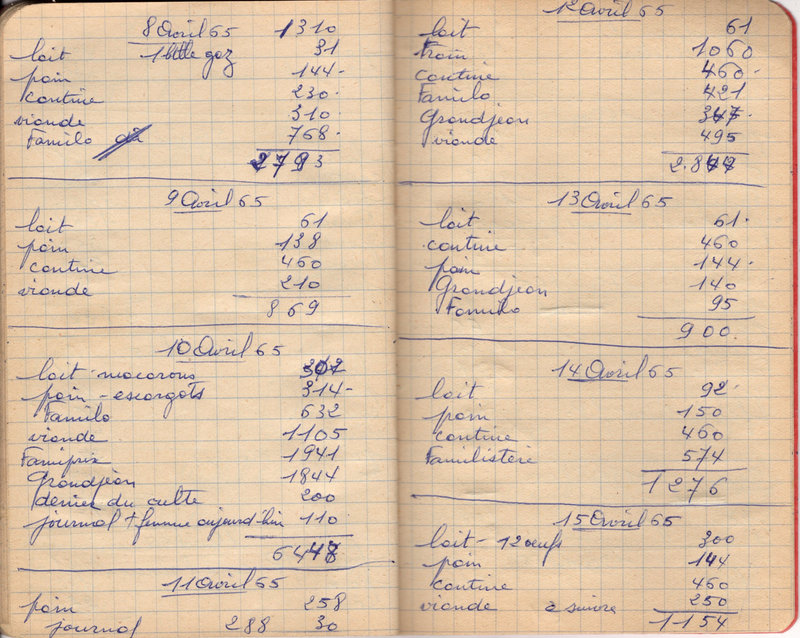 8 Avril 65
1 btlle gaz 1310
lait 31
pain 144
cantine 230
viande 310
Familo 768
2793
9 Avril 65
lait 61
pain 138
cantine 460
viande 210
869
10 Avril 65
lait - macarons 302
pain - escargots 314
Familo 632
viande 1105
Famiprix 1941
Grandjean 1844
denier du culte 200
journal + femme aujourd'hui 110
6448
11 Avril 65
pain 258
journal 288 30
12 Avril 65
lait 61
train 1060
cantine 460
Familo 421
Grandjean 347
viande 495
2.844
13 Avril 65
lait 61
cantine 460
pain 144
Grandjean 140
Familo 95
900
14 Avril 65
lait 92
pain 150
cantine 460
Familistère 574
1276
15 Avril 65
lait - 12 oeufs 300
pain 144
cantine 460
viande à suivre 250
1154